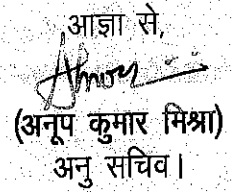 आज्ञा से,
(अनूप कुमार मिश्रा)
अनु सचिव।